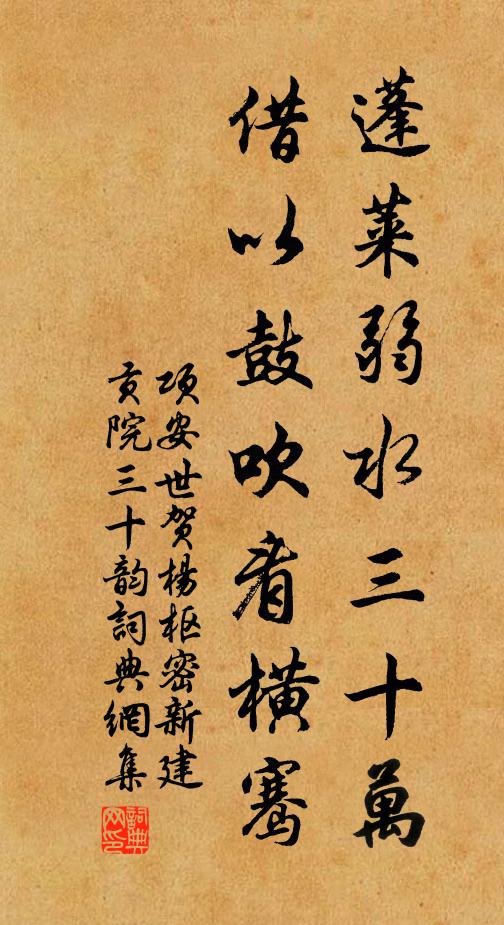 蓬莱弱水三十萬
借以鼓吹看橫騫
项安世贺楊枢密新建
贡院三十韵詞典網集
詞典网印